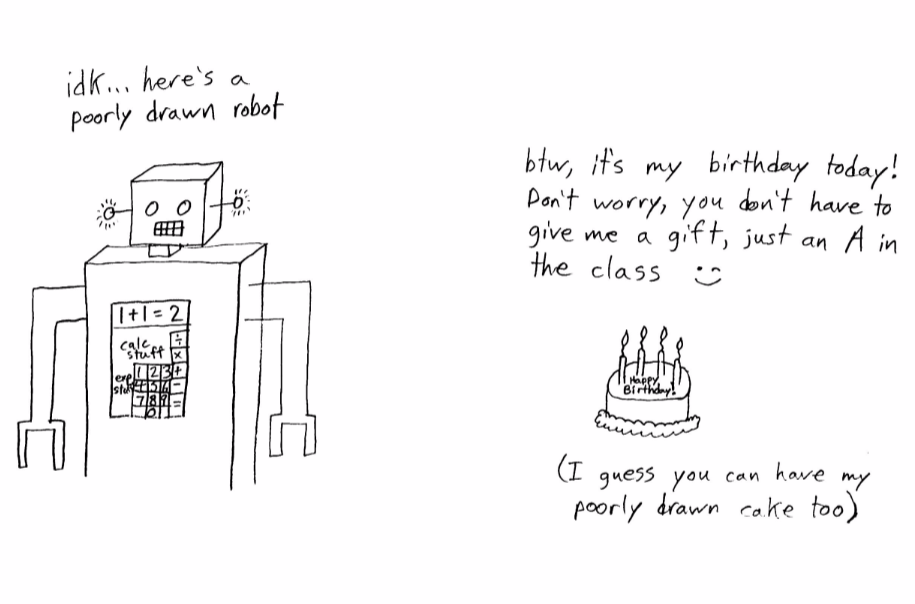 idk... here's a
poorly drawn robot
1+1=2
calc
stuff
÷
×
exp
stuff
1 2 3 +
4 5 6 -
7 8 9 =
0
btw, it's my birthday today!
Don't worry, you don't have to
give me a gift, just an A in
the class :)
Happy
Birthday!
(I guess you can have my
poorly drawn cake too)